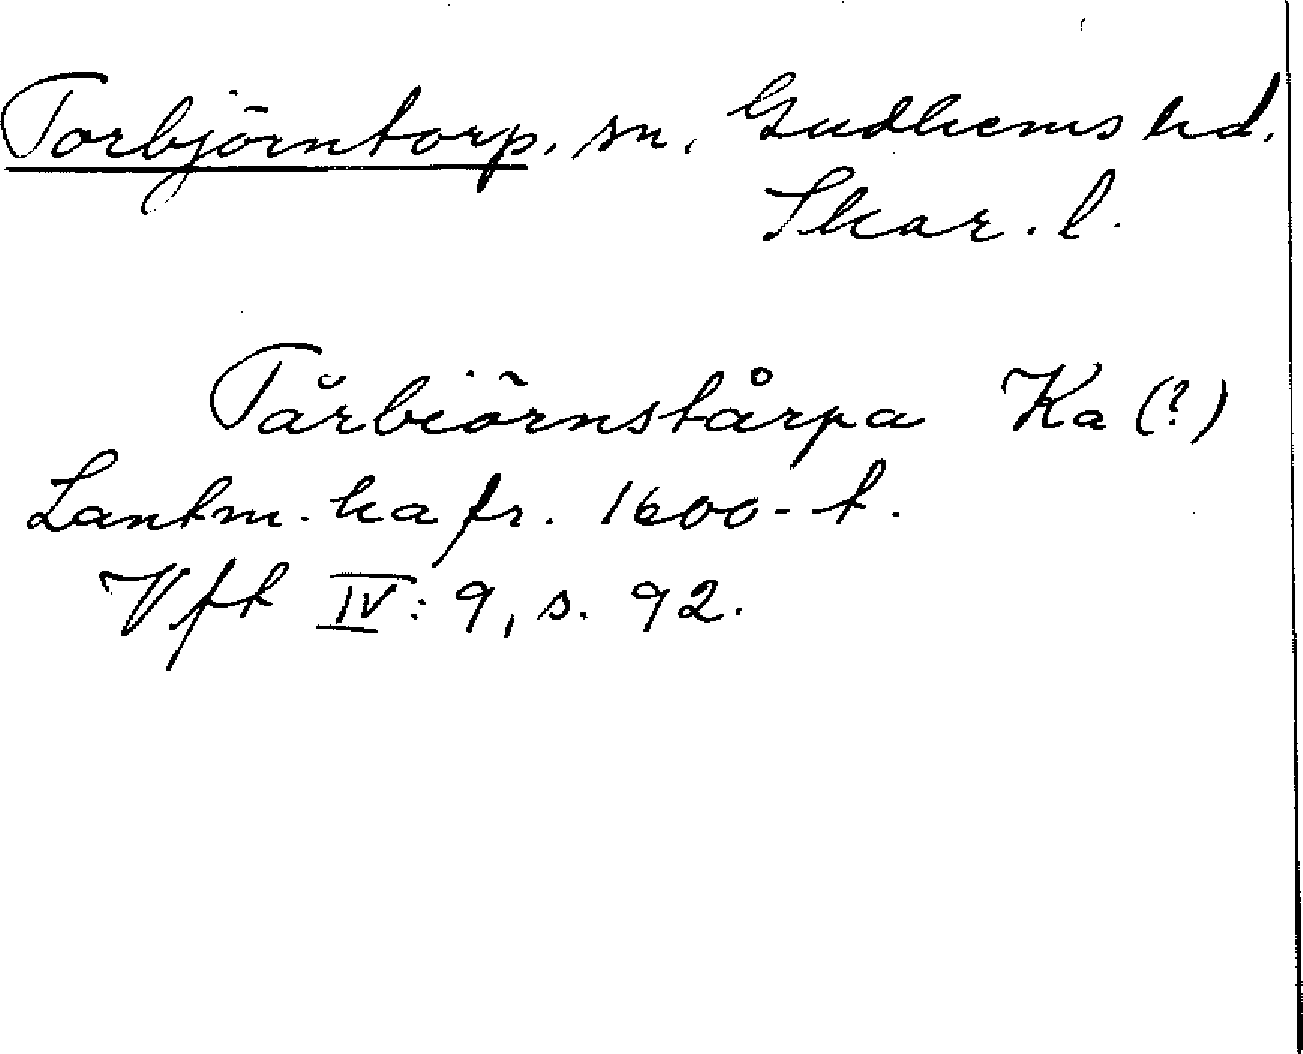 Torbjörntorp, sn, Gudhems hd,
Skar. l.
Tårbiörnstårpa Ka (?)
Lantm. ka fr. 1600-t.
Vft IV: 9, s. 92.